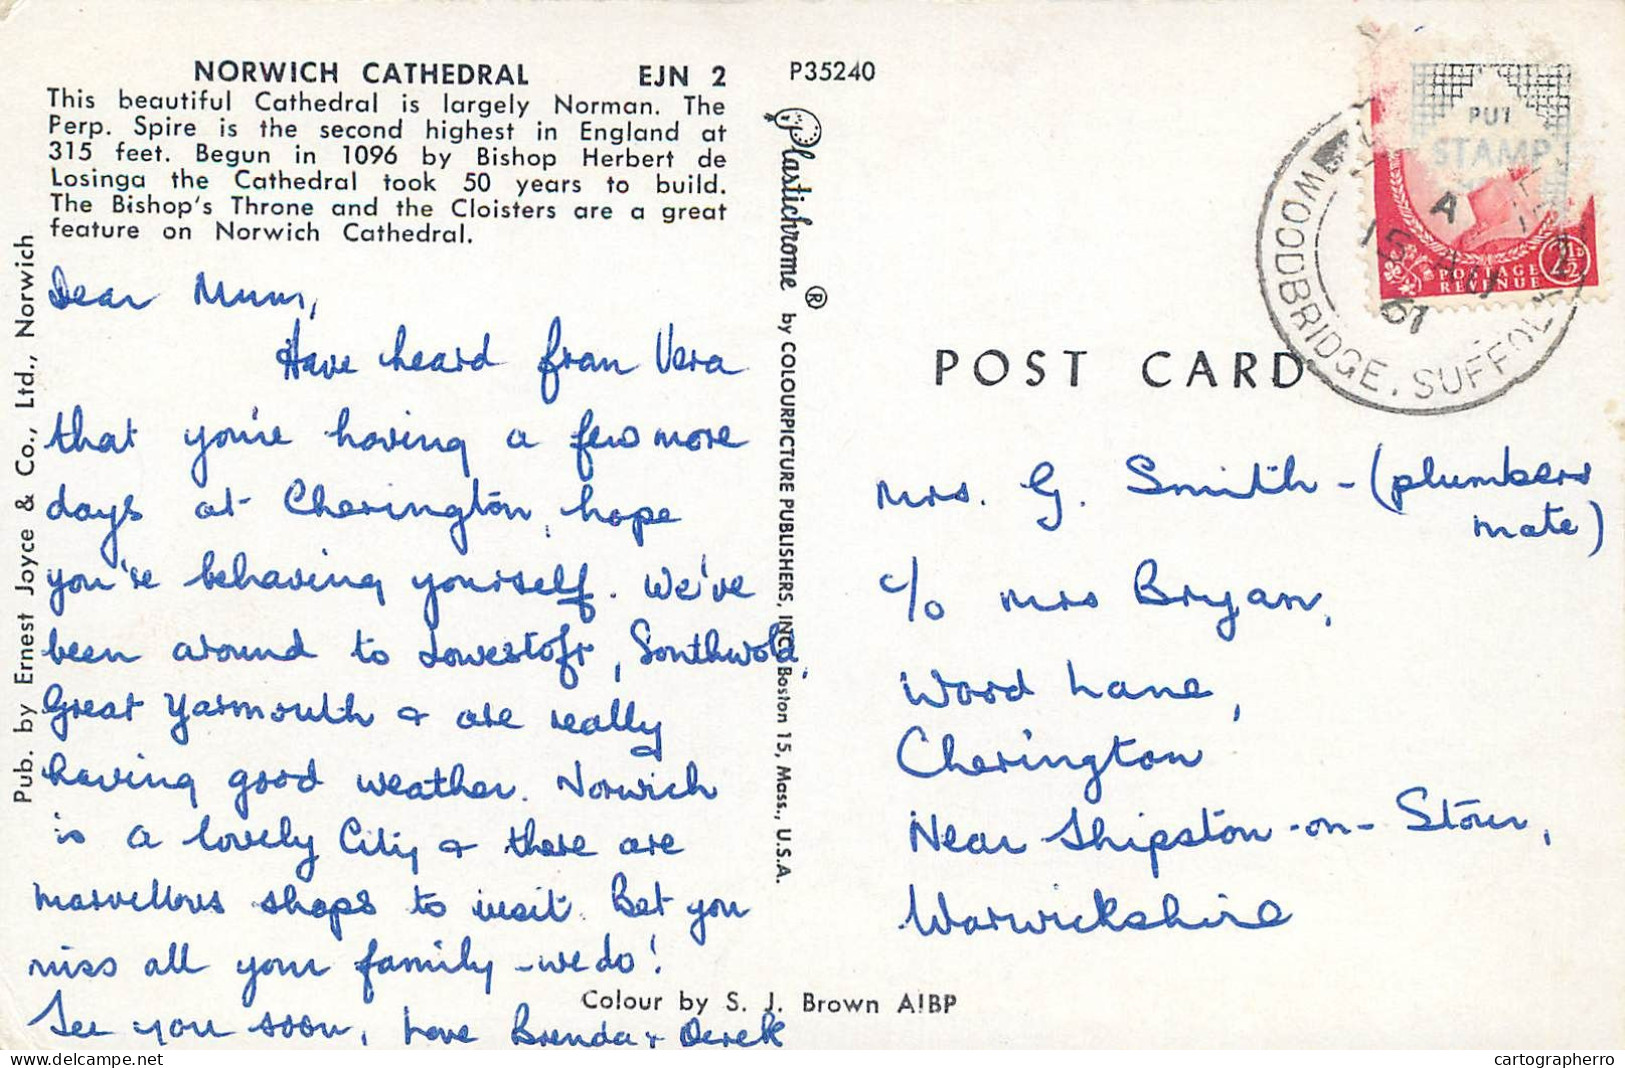 NORWICH CATHEDRAL EJN 2
This beautiful Cathedral is largely Norman. The
Perp. Spire is the second highest in England at
315 feet. Begun in 1096 by Bishop Herbert de
Losinga the Cathedral took 50 years to build.
The Bishop's Throne and the Cloisters are a great
feature on Norwich Cathedral.
Pub. by Ernest Joyce & Co., Ltd., Norwich
Dear Mum,
Have heard from Vera
that you're having a few more
days at Cherington, hope
you're behaving yourself. We've
been around to Lowestoft, Southwold,
Great Yarmouth & are really
having good weather. Norwich
is a lovely City & there are
marvellous shops to visit. Bet you
miss all your family - we do!
See you soon, Love Brenda & Derek
P35240
Plastichrome ® by COLOURPICTURE PUBLISHERS, INC., Boston 15, Mass., U.S.A.
Colour by S. J. Brown AIBP
POST CARD
PUT
STAMP
POSTAGE
REVENUE
2½D
WOODBRIDGE, SUFFOLK
A
15 AU
61
Mrs. G. Smith - (plumbers
mate)
c/o Mrs Bryan,
Wood Lane,
Cherington
Near Shipston-on-Stour,
Warwickshire
delcampe.net
cartographerro